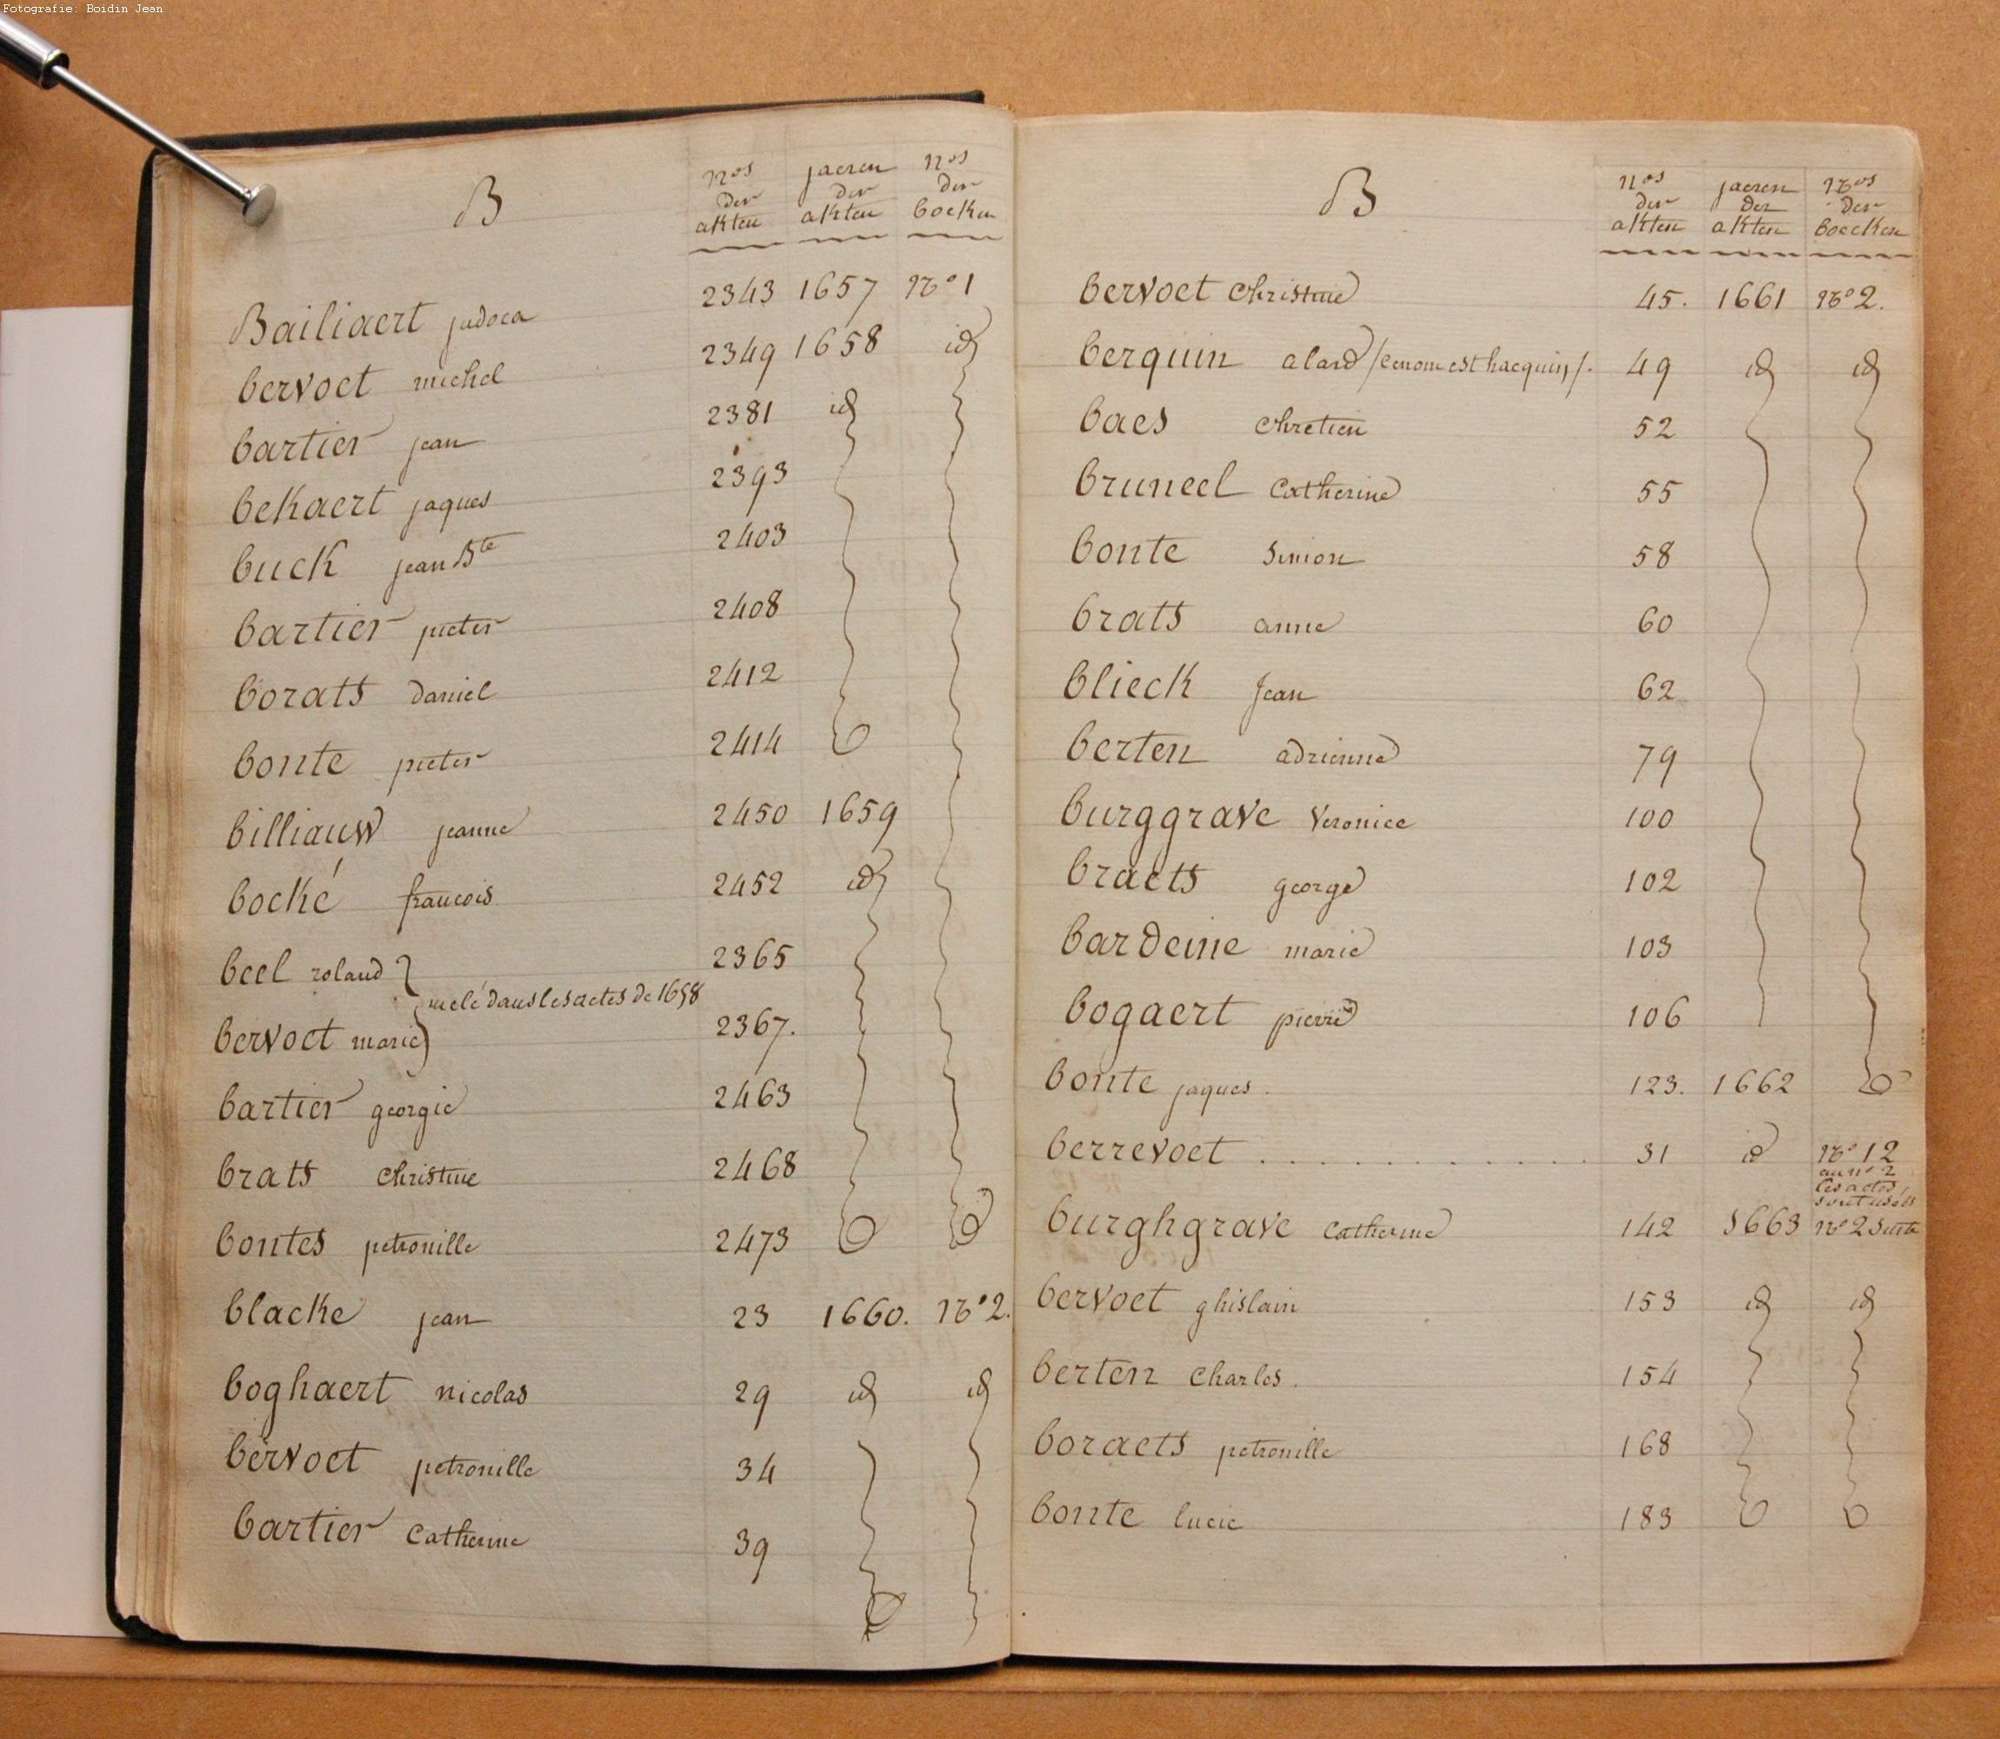 Fotografie: Boidin Jean
B
nos der akten
jaeren der akten
nos der boeken
Bailiaert judoca 2343 1657 No 1
bervoet michel 2349 1658 id
bartier jean 2381 id
bekaert jaques 2393
buck jean Bte 2403
bartier pieter 2408
borats daniel 2412
bonte pieter 2414
billiauw jeanne 2450 1659
bocké francois 2452 id
beel roland 2365
melé dans les actes de 1658
bervoet marie 2367.
bartier georgie 2463
brats christine 2468
bontes petronille 2473
blacke jean 23 1660. No 2.
boghaert nicolas 29 id id
bervoet petronille 34
bartier catherine 39
B
nos der akten
jaeren der akten
nos der boecken
bervoet christine 45. 1661 No 2.
berquin alard /le nom est hacquin/. 49 id id
baes chretien 52
bruneel catherine 55
bonte simon 58
brats anne 60
blieck Jean 62
berten adrienne 79
burggrave veronice 100
braets george 102
bardeine marie 103
bogaert pierre 106
bonte jaques. 123. 1662
berrevoet . . . . . . . . . . . . 31 id No 12
au no 2
les actes
sont usés
burghgrave catherine 142 1663 no 2 suite
bervoet ghislain 153 id id
berten charles. 154
boraets petronille 168
bonte lucie 183